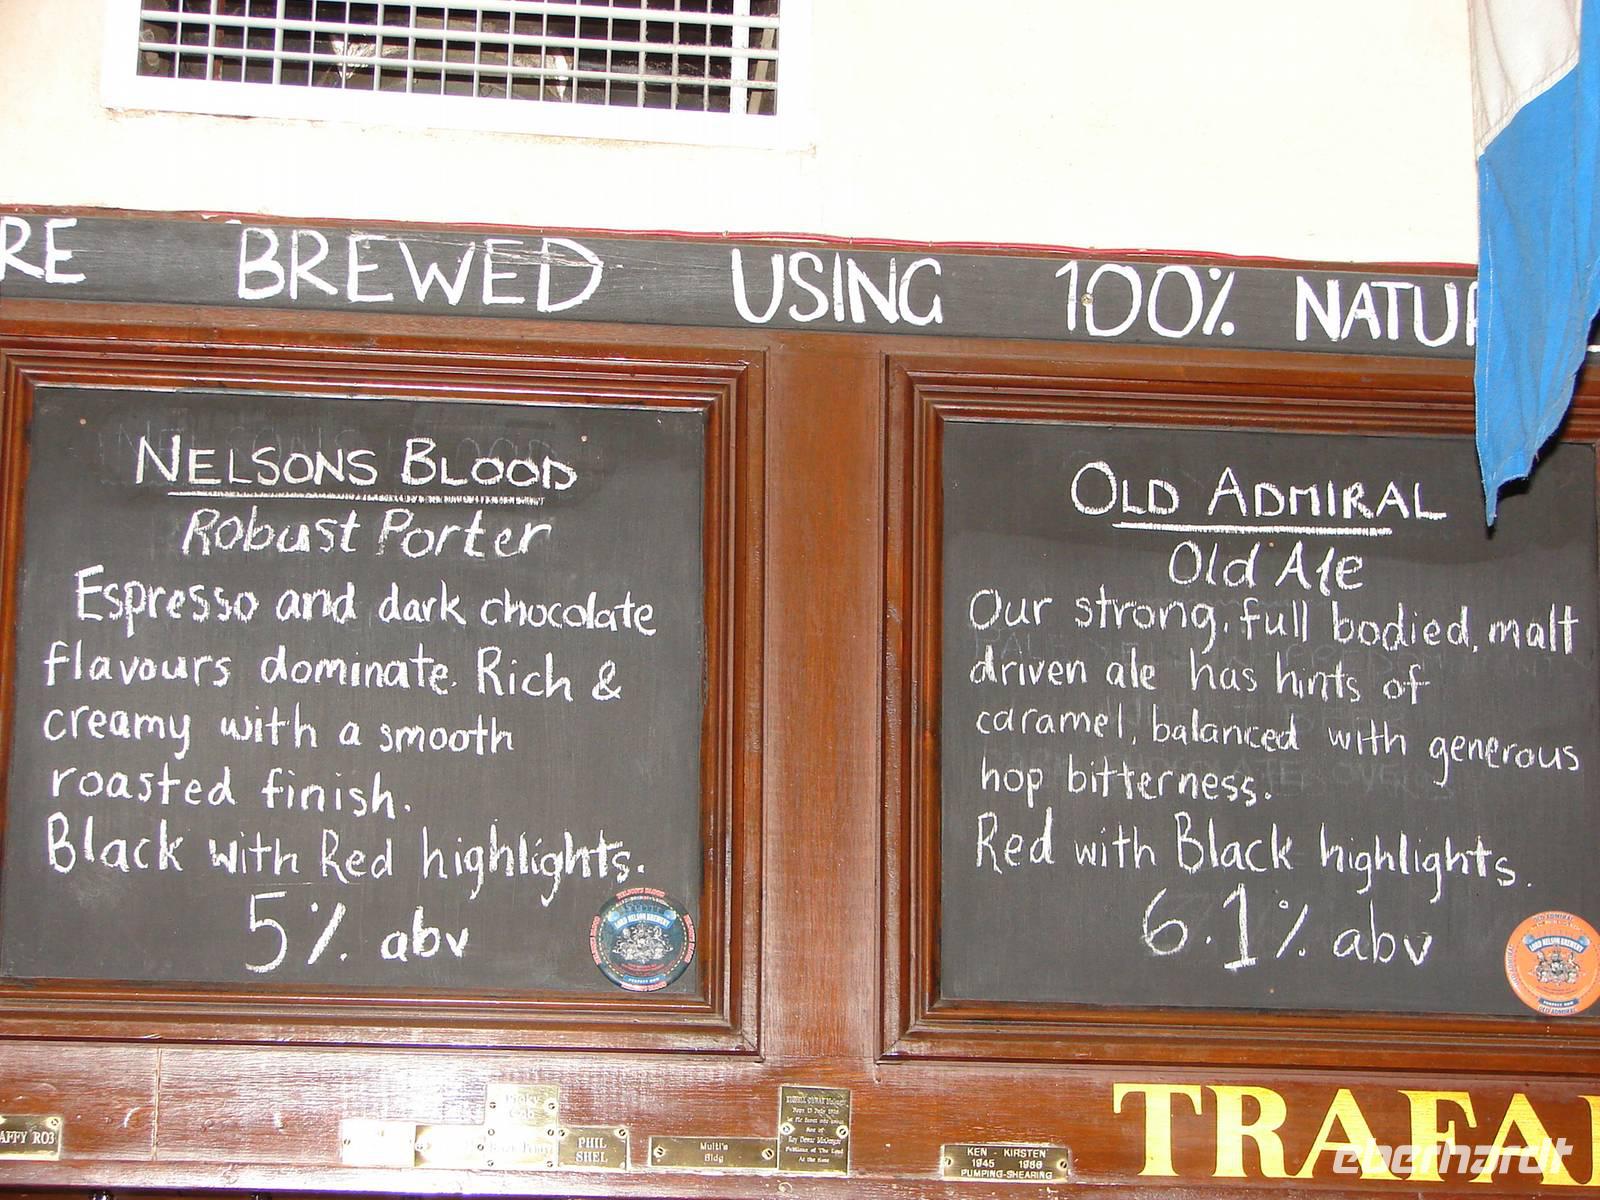 RE BREWED USING 100% NATU
NELSONS BLOOD
Robust Porter
Espresso and dark chocolate
flavours dominate. Rich &
creamy with a smooth
roasted finish.
Black with Red highlights.
5% abv
NELSON'S BLOOD
LORD NELSON BREWERY
OLD ADMIRAL
Old Ale
Our strong, full bodied, malt
driven ale has hints of
caramel, balanced with generous
hop bitterness.
Red with Black highlights.
6.1% abv
OLD ADMIRAL
LORD NELSON BREWERY
PERFECT NOW
OLD ADMIRAL
TRAFA
AFFY RO3
PHIL
SHEL
Multi's
Bldg
KEN - KIRSTEN
1945 1986
PUMPING-SHEARING
eberhardt